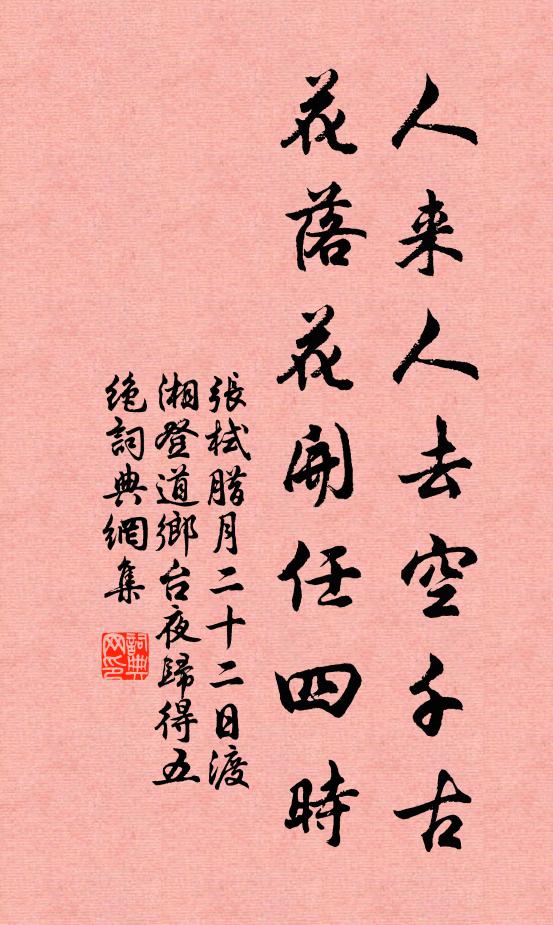 人来人去空千古
花落花開任四時
張栻腊月二十二日渡
湘登道鄉台夜歸得五
绝詞典網集
詞典网印